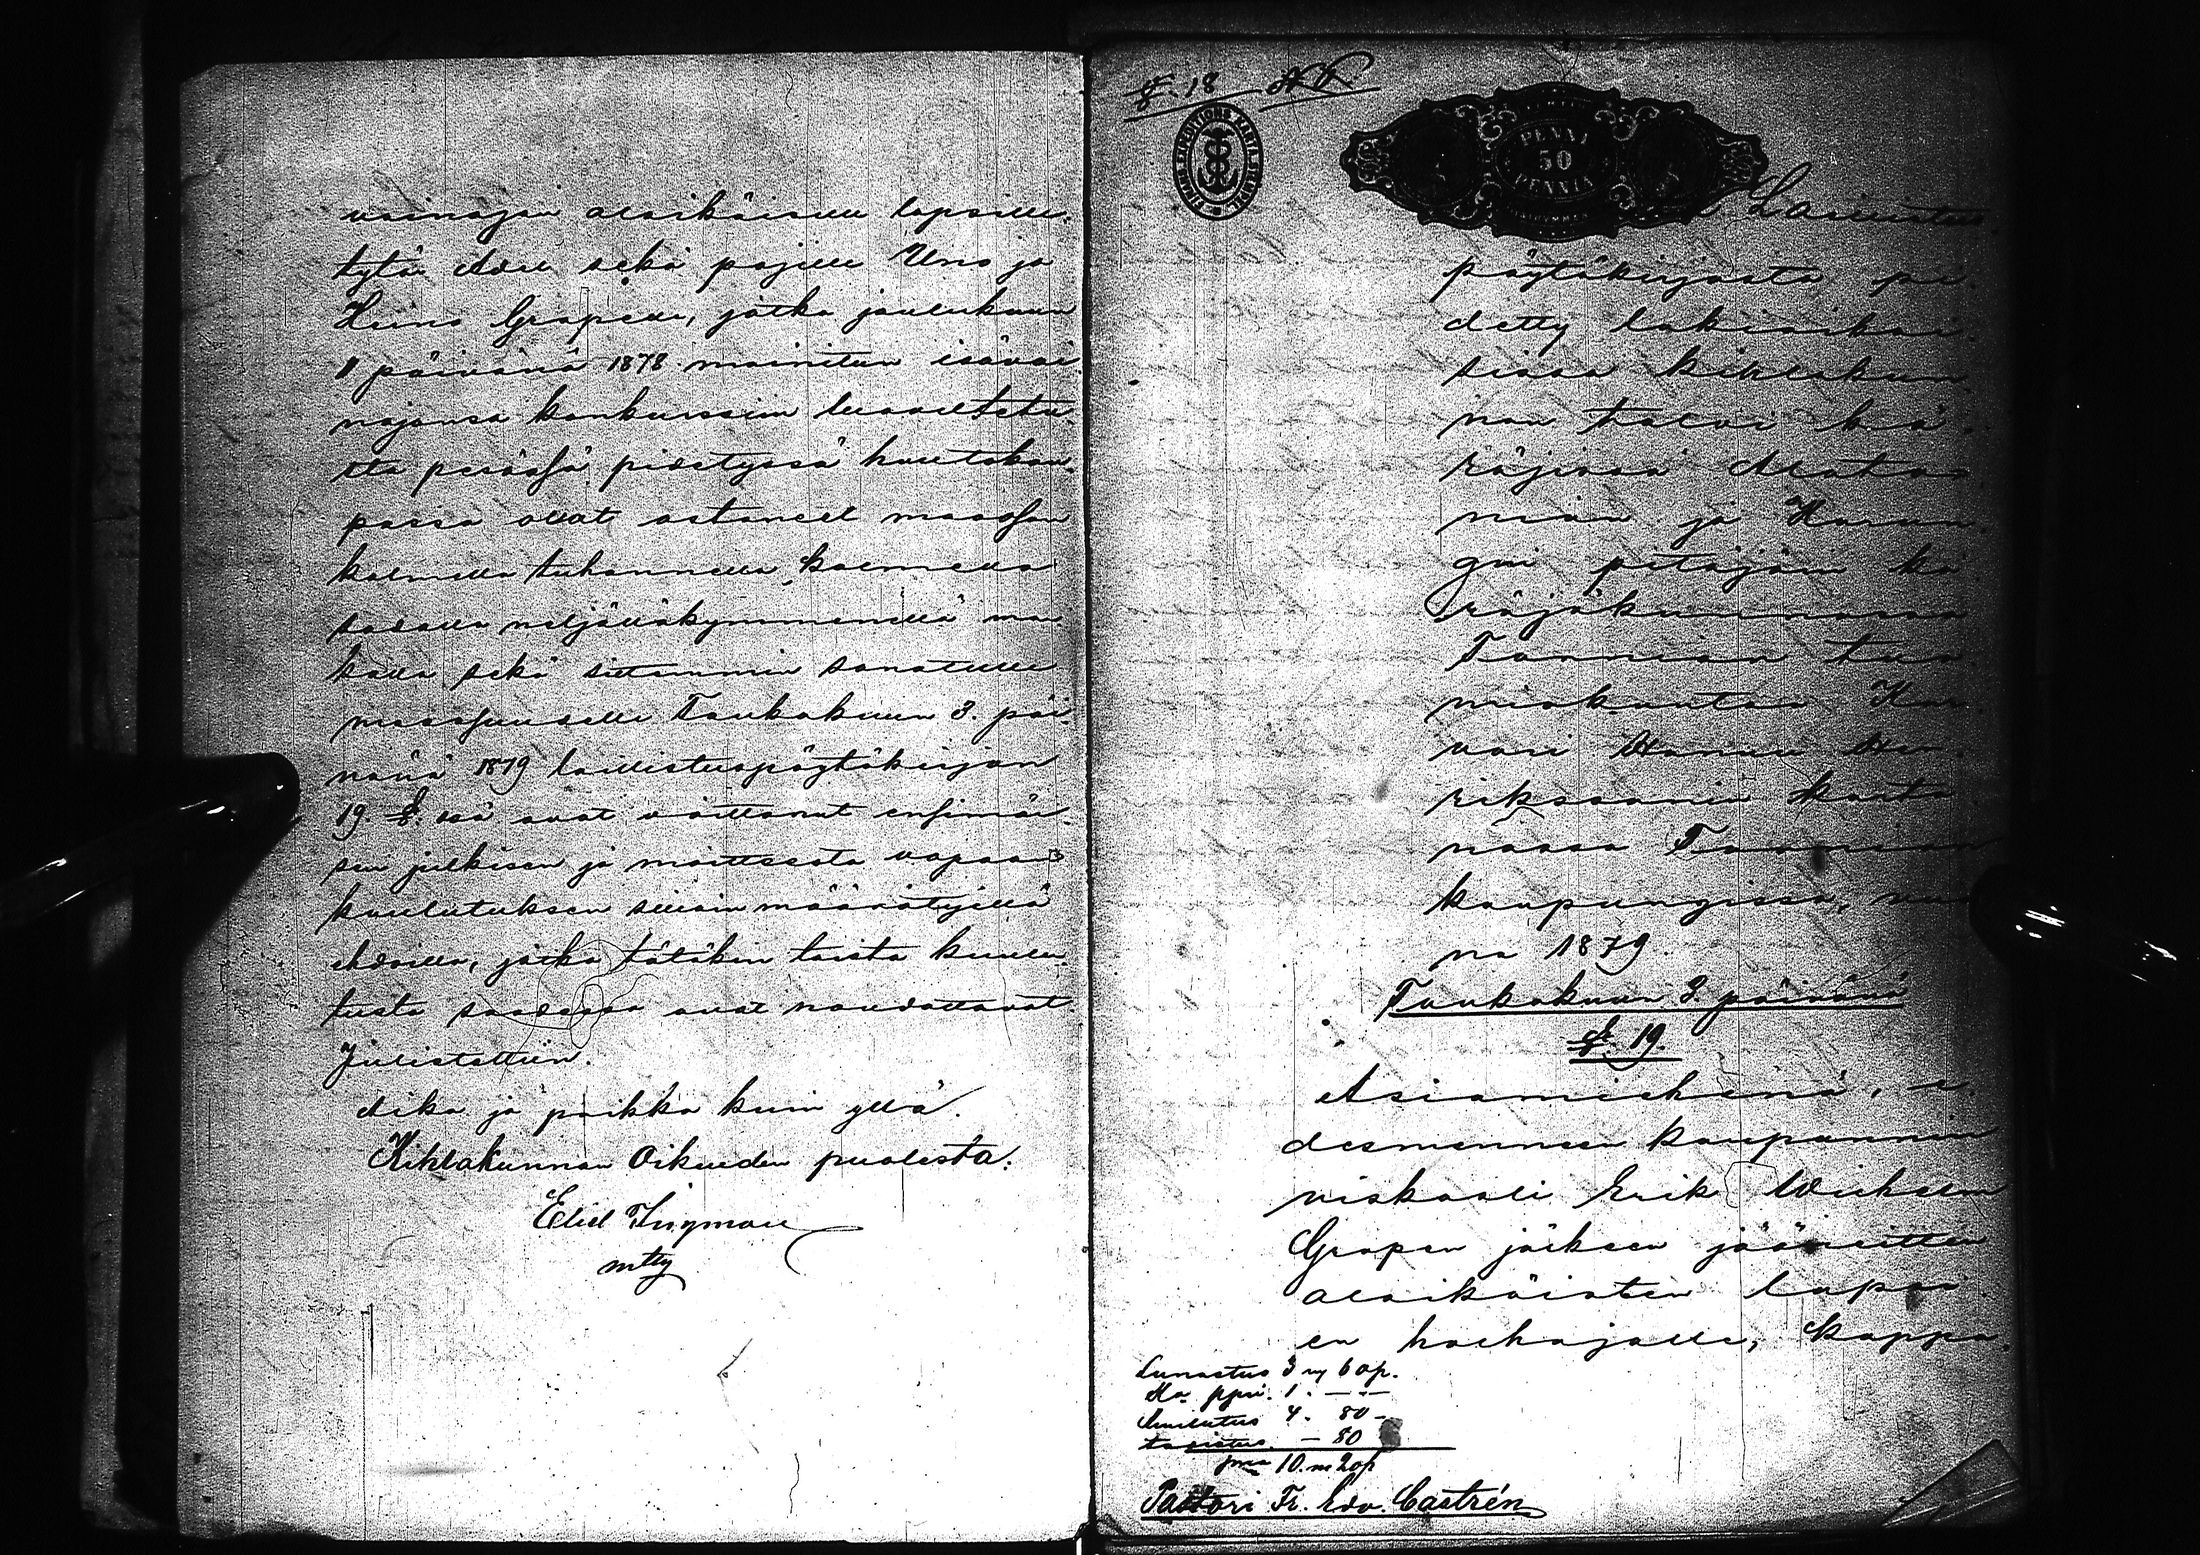 vainajan alaikäisille lapsille,
tytär Adele sekä pojille Uno ja
Heino Grapelle, jotka joulukuun
11 päivänä 1878 mainitun isävai-
najansa konkurssiin luovutetu-
sta pesästä pidetyssä huutokau-
passa ovat ostaneet maaosan
kolmella tuhannella kolmella
sadalla neljälläkymmenellä mar
kalla sekä sittemmin sanatulle
maaosuudelle Toukokuun 3. päi-
vänä 1879 laillistuspöytäkirjan
19. §. ssä ovat voittanut ensimäi-
sen julkisen ja moitteesta vapaan
kuulutuksen silloin määrätyillä
ehdoilla, jotka tätäkin toista kuulu-
tusta saadessa ovat noudattavat.
Julistettiin.
Aika ja paikka kuin yllä.
Kihlakunnan Oikeuden puolesta:
Eliel Tingman
mtty
§. 18 N. P.
PENNI
50
PENNIÄ
Lainhuutus
pöytäkirjasta pi-
detty lakiaikai-
sissa kihlakun-
nan talvi kä-
räjissä Alator-
nion ja Karun-
gin pitäjäin kä
räjäkunnassa
Tornion tuo-
miokuntaa Kar-
vari Hannu Hen-
rikssonin karta-
nossa Tornion
kaupungissa, vuo
na 1879.
Toukokuun 3. päivänä
§. 19.
Asiamiehenä, e-
desmenneen kaupungin
viskaali Erik Wilhelm
Grapen jälkeen jääneitten
alaikäisten lapsi-
en holhojalle, kappa-
Lunastus 3 m 60 p.
1. — —
Kuulutus 4. 80 -
— 80
10. m 20 p
Pastori Fr. Edv. Castrén